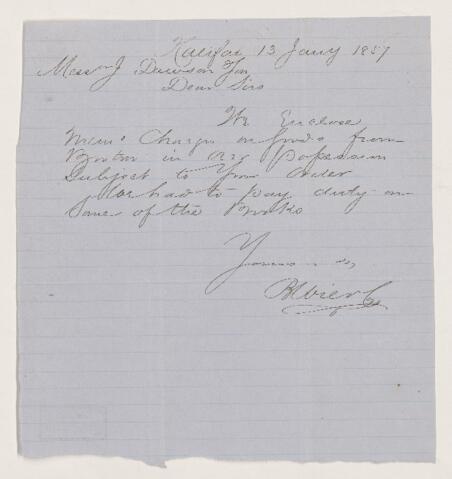 Halifax 13 Jany 1857
Messrs J Dawson & Son
Dear Sirs
We Enclose
Memo Charges on goods from
Boston in our Possession
Subject to your order
We had to pay duty on
Some of the Books
Yours
B Wier & Co